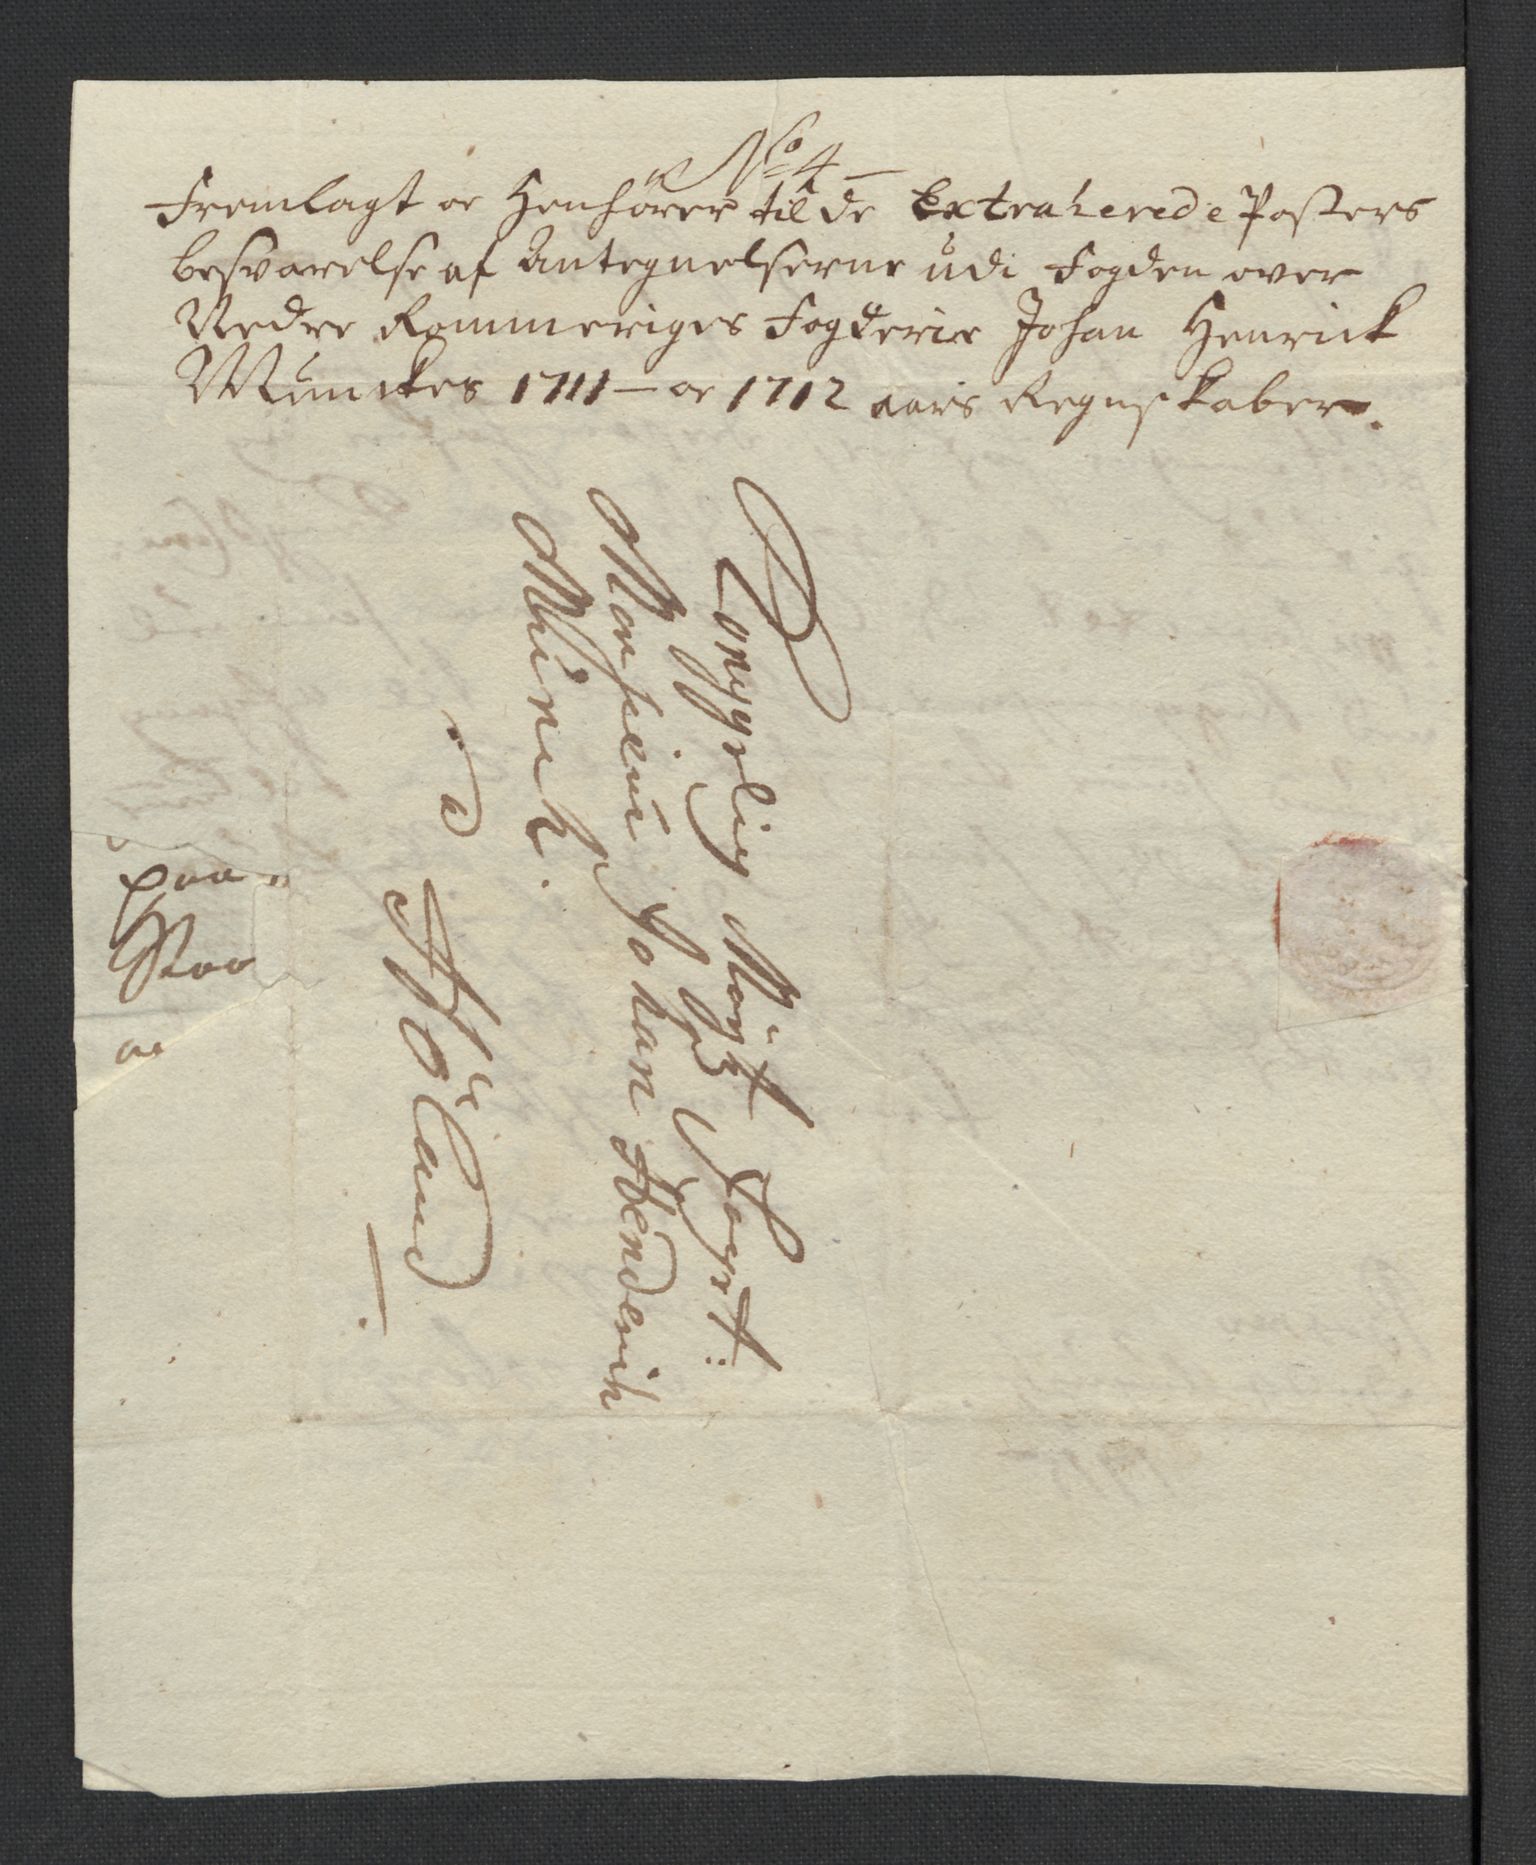 No 4
Fremlagt oc Henhörer til de Extraherede Posters
besvarelse af Antegnelserne udi Fogden over
Nedre Rommeriges Fogderie Johan Henrick
Munckes 1711 — oc 1712 aars Regnskaber.
Kongerlig Mayt Fogt:
Monsieur Johan Henderich
Münch.
a
Höland
paa